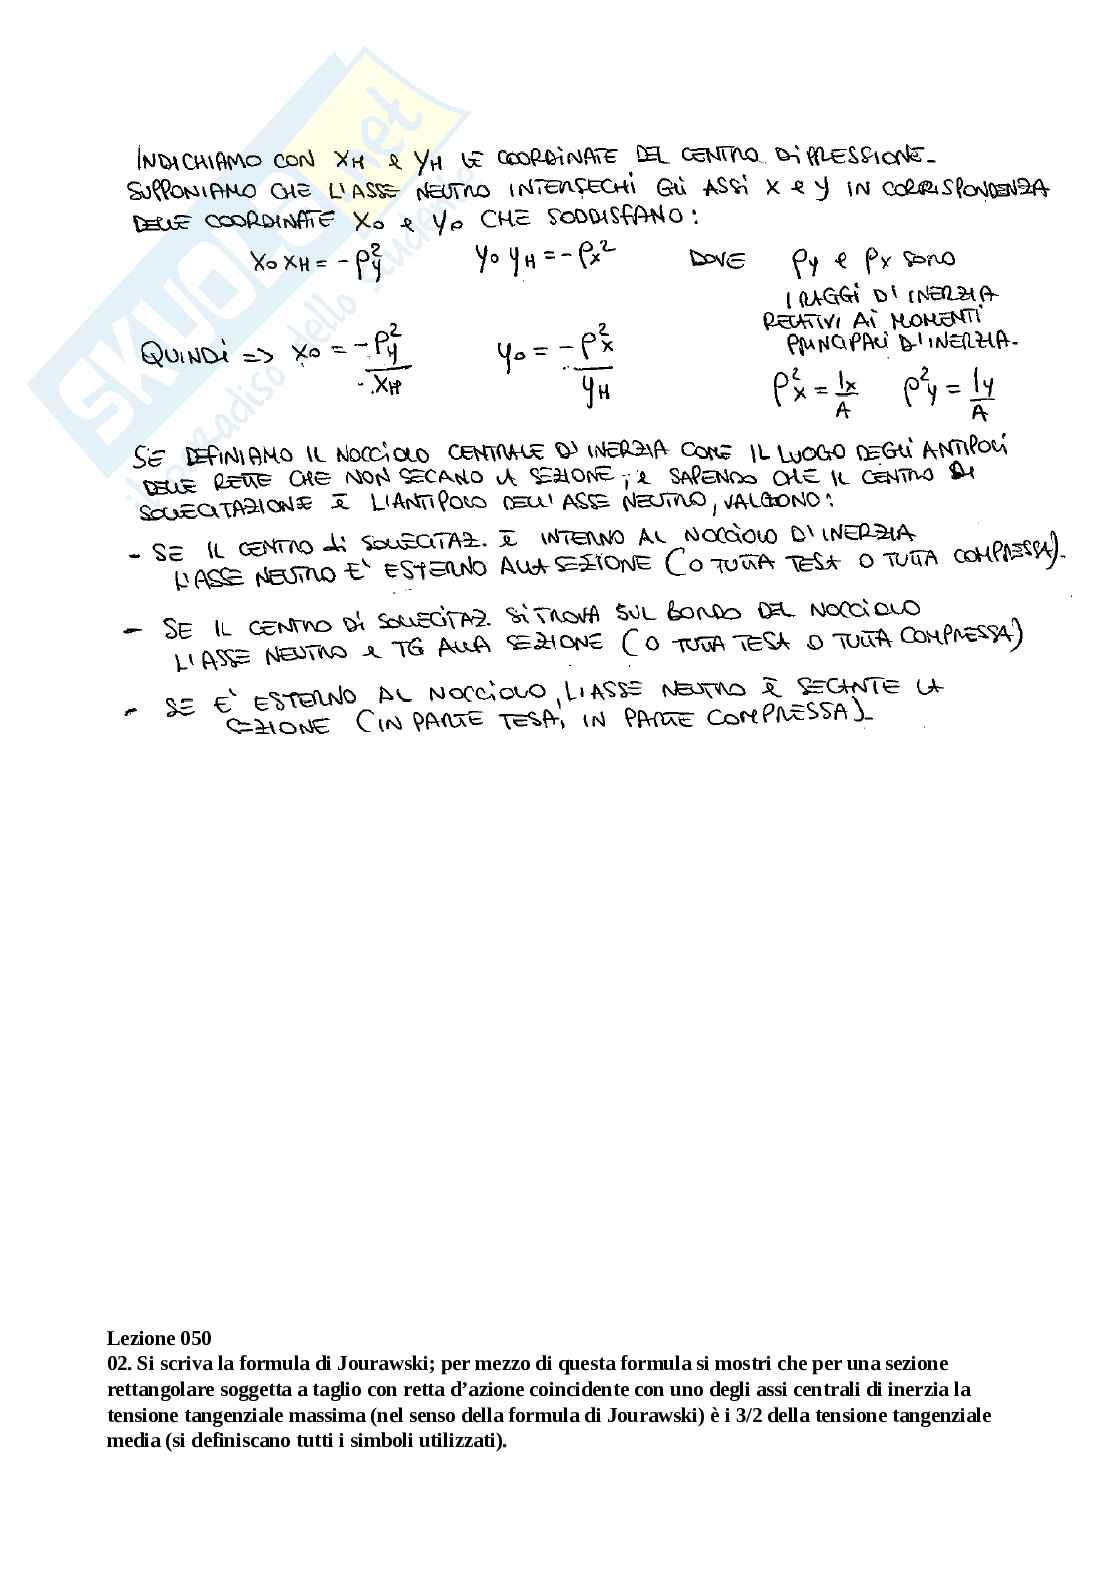 SKUOLA.net
il paradiso dello studente
INDICHIAMO CON XH e YH LE COORDINATE DEL CENTRO DI PRESSIONE.
SUPPONIAMO CHE L'ASSE NEUTRO INTERSECHI GLI ASSI X e Y IN CORRISPONDENZA
DELLE COORDINATE X0 e Y0 CHE SODDISFANO:
X0 XH = - ρy² Y0 YH = - ρx² DOVE ρy e ρx SONO
I RAGGI DI INERZIA
RELATIVI AI MOMENTI
PRINCIPALI D'INERZIA.
QUINDI => X0 = -ρy²/XH Y0 = -ρx²/YH
ρ²x = Ix/A ρ²y = Iy/A
SE DEFINIAMO IL NOCCIOLO CENTRALE DI INERZIA COME IL LUOGO DEGLI ANTIPOLI
DELLE RETTE CHE NON SECANO LA SEZIONE, e SAPENDO CHE IL CENTRO DI
SOLLECITAZIONE È L'ANTIPOLO DELL'ASSE NEUTRO, VALGONO:
- SE IL CENTRO di SOLLECITAZ. È INTERNO AL NOCCIOLO D'INERZIA
L'ASSE NEUTRO E' ESTERNO ALLA SEZIONE (O TUTTA TESA O TUTTA COMPRESSA).
- SE IL CENTRO DI SOLLECITAZ. SI TROVA SUL BORDO DEL NOCCIOLO
L'ASSE NEUTRO e TG ALLA SEZIONE (O TUTTA TESA O TUTTA COMPRESSA)
- SE E' ESTERNO AL NOCCIOLO, L'ASSE NEUTRO È SECANTE LA
SEZIONE (IN PARTE TESA, IN PARTE COMPRESSA).
Lezione 050
02. Si scriva la formula di Jourawski; per mezzo di questa formula si mostri che per una sezione
rettangolare soggetta a taglio con retta d'azione coincidente con uno degli assi centrali di inerzia la
tensione tangenziale massima (nel senso della formula di Jourawski) è i 3/2 della tensione tangenziale
media (si definiscano tutti i simboli utilizzati).